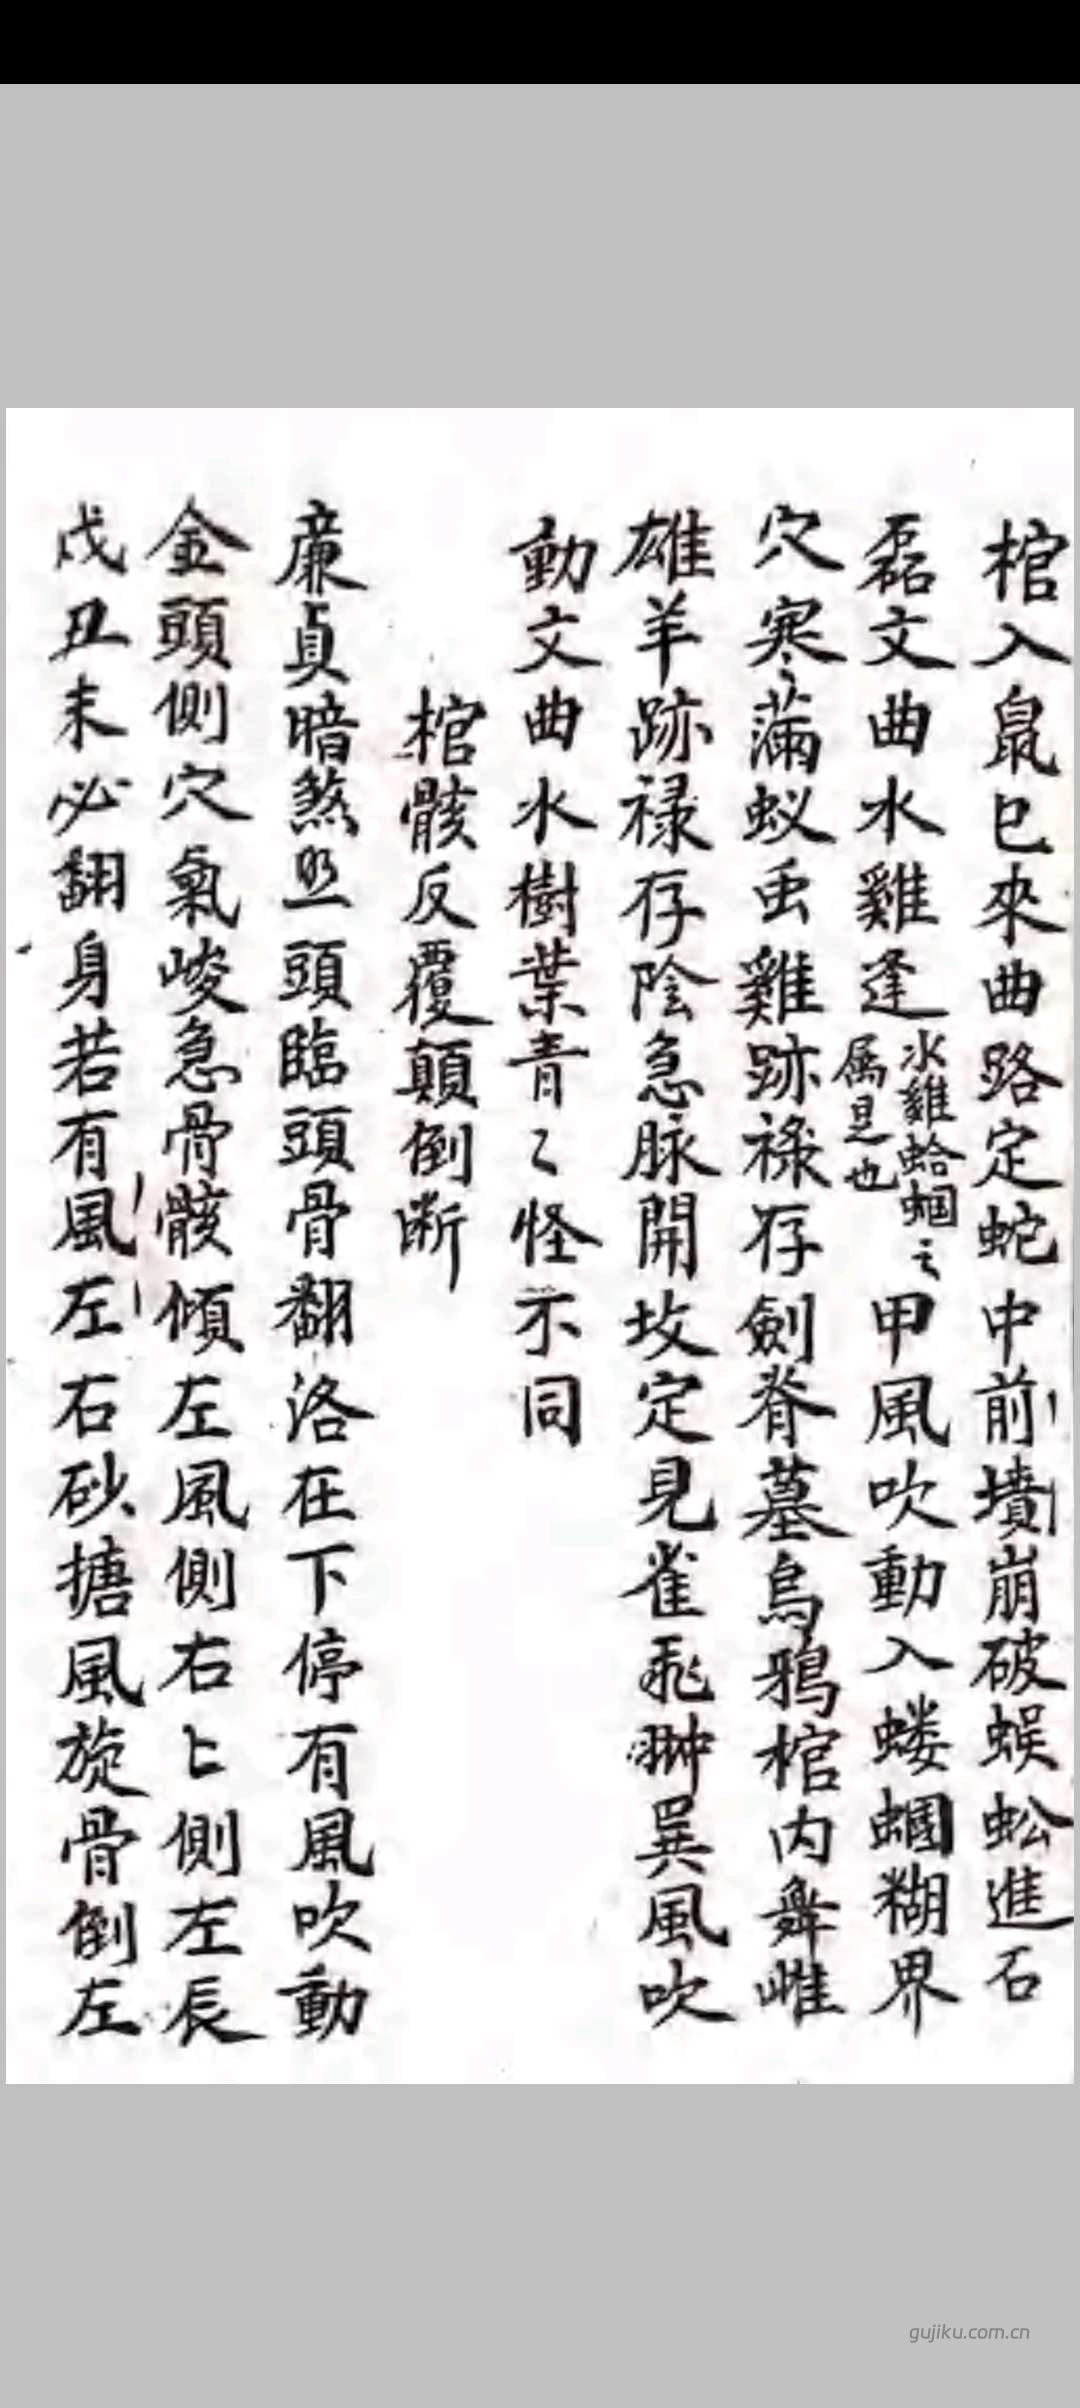 棺入鼠巳來曲路定蛇中前墳崩破蜈蚣進石
磊文曲水雞逢水雞蛤蝈之属是也甲風吹動入蝼蝈糊界
穴寒〻滿蚁虫雞跡禄存劍脊墓烏鴉棺内舞雌
雄羊跡禄存陰急脉開坟定見雀飛翀巽風吹
動文曲水樹葉青〻怪不同
棺骸反覆顛倒断
廉貞暗煞照頭臨頭骨翻洛在下停有風吹動
金頭側穴氣峻急骨骸傾左風側右〻側左辰
戌丑未必翻身若有風左右砂搪風旋骨倒左
gujiku.com.cn